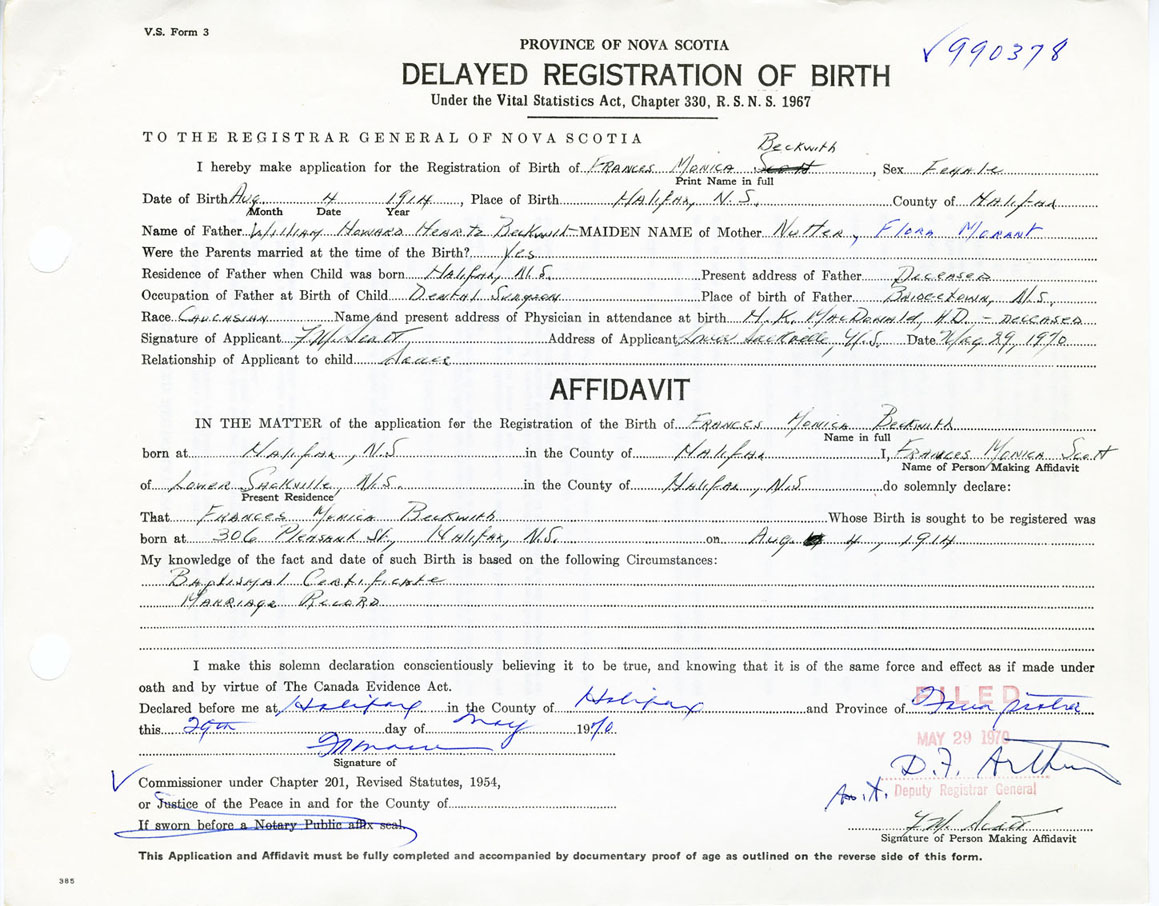 V.S. Form 3
✓990378
PROVINCE OF NOVA SCOTIA
DELAYED REGISTRATION OF BIRTH
Under the Vital Statistics Act, Chapter 330, R. S. N. S. 1967
TO THE REGISTRAR GENERAL OF NOVA SCOTIA
Beckwith
I hereby make application for the Registration of Birth of Frances Monica Scott, Sex Female
Print Name in full
Date of Birth Aug 4 1914, Place of Birth Halifax, N.S. County of Halifax
Month Date Year
Name of Father William Howard Heartz Beckwith MAIDEN NAME of Mother Nutter, Flora Morant
Were the Parents married at the time of the Birth? Yes
Residence of Father when Child was born Halifax, N.S. Present address of Father Deceased
Occupation of Father at Birth of Child Dental Surgeon Place of birth of Father Bridgetown, N.S.
Race Caucasian Name and present address of Physician in attendance at birth H. K. MacDonald, M.D. - deceased
Signature of Applicant F.M. Scott Address of Applicant Lower Sackville, N.S. Date May 29, 1970
Relationship of Applicant to child
AFFIDAVIT
IN THE MATTER of the application for the Registration of the Birth of Frances Monica Beckwith
Name in full
born at Halifax, N.S in the County of Halifax I, Frances Monica Scott
Name of Person Making Affidavit
of Lower Sackville, N.S. in the County of Halifax, N.S do solemnly declare:
Present Residence
That Frances Monica Beckwith Whose Birth is sought to be registered was
born at 306 Pleasant St., Halifax, N.S. on Aug 4, 1914
My knowledge of the fact and date of such Birth is based on the following Circumstances:
Baptismal Certificate
Marriage Record
I make this solemn declaration conscientiously believing it to be true, and knowing that it is of the same force and effect as if made under
oath and by virtue of The Canada Evidence Act.
Declared before me at Halifax in the County of Halifax and Province of Nova Scotia
FILED
this 29th day of May 1970
MAY 29 1970
Signature of
D.F. Arthur
Commissioner under Chapter 201, Revised Statutes, 1954,
Deputy Registrar General
or Justice of the Peace in and for the County of
If sworn before a Notary Public affix seal.
F.M. Scott
Signature of Person Making Affidavit
This Application and Affidavit must be fully completed and accompanied by documentary proof of age as outlined on the reverse side of this form.
385